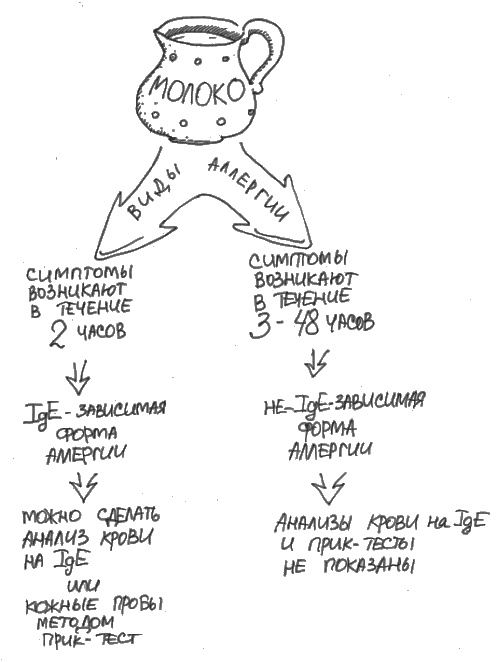 МОЛОКО
ВИДЫ АЛЛЕРГИИ
СИМПТОМЫ
ВОЗНИКАЮТ
В ТЕЧЕНИЕ
2 ЧАСОВ
IgE-ЗАВИСИМАЯ
ФОРМА
АЛЛЕРГИИ
МОЖНО СДЕЛАТЬ
АНАЛИЗ КРОВИ
НА IgE
ИЛИ
КОЖНЫЕ ПРОБЫ
МЕТОДОМ
ПРИК-ТЕСТ
СИМПТОМЫ
ВОЗНИКАЮТ
В ТЕЧЕНИЕ
3-48 ЧАСОВ
НЕ-IgE-ЗАВИСИМАЯ
ФОРМА
АЛЛЕРГИИ
АНАЛИЗЫ КРОВИ на IgE
И ПРИК-ТЕСТЫ
НЕ ПОКАЗАНЫ